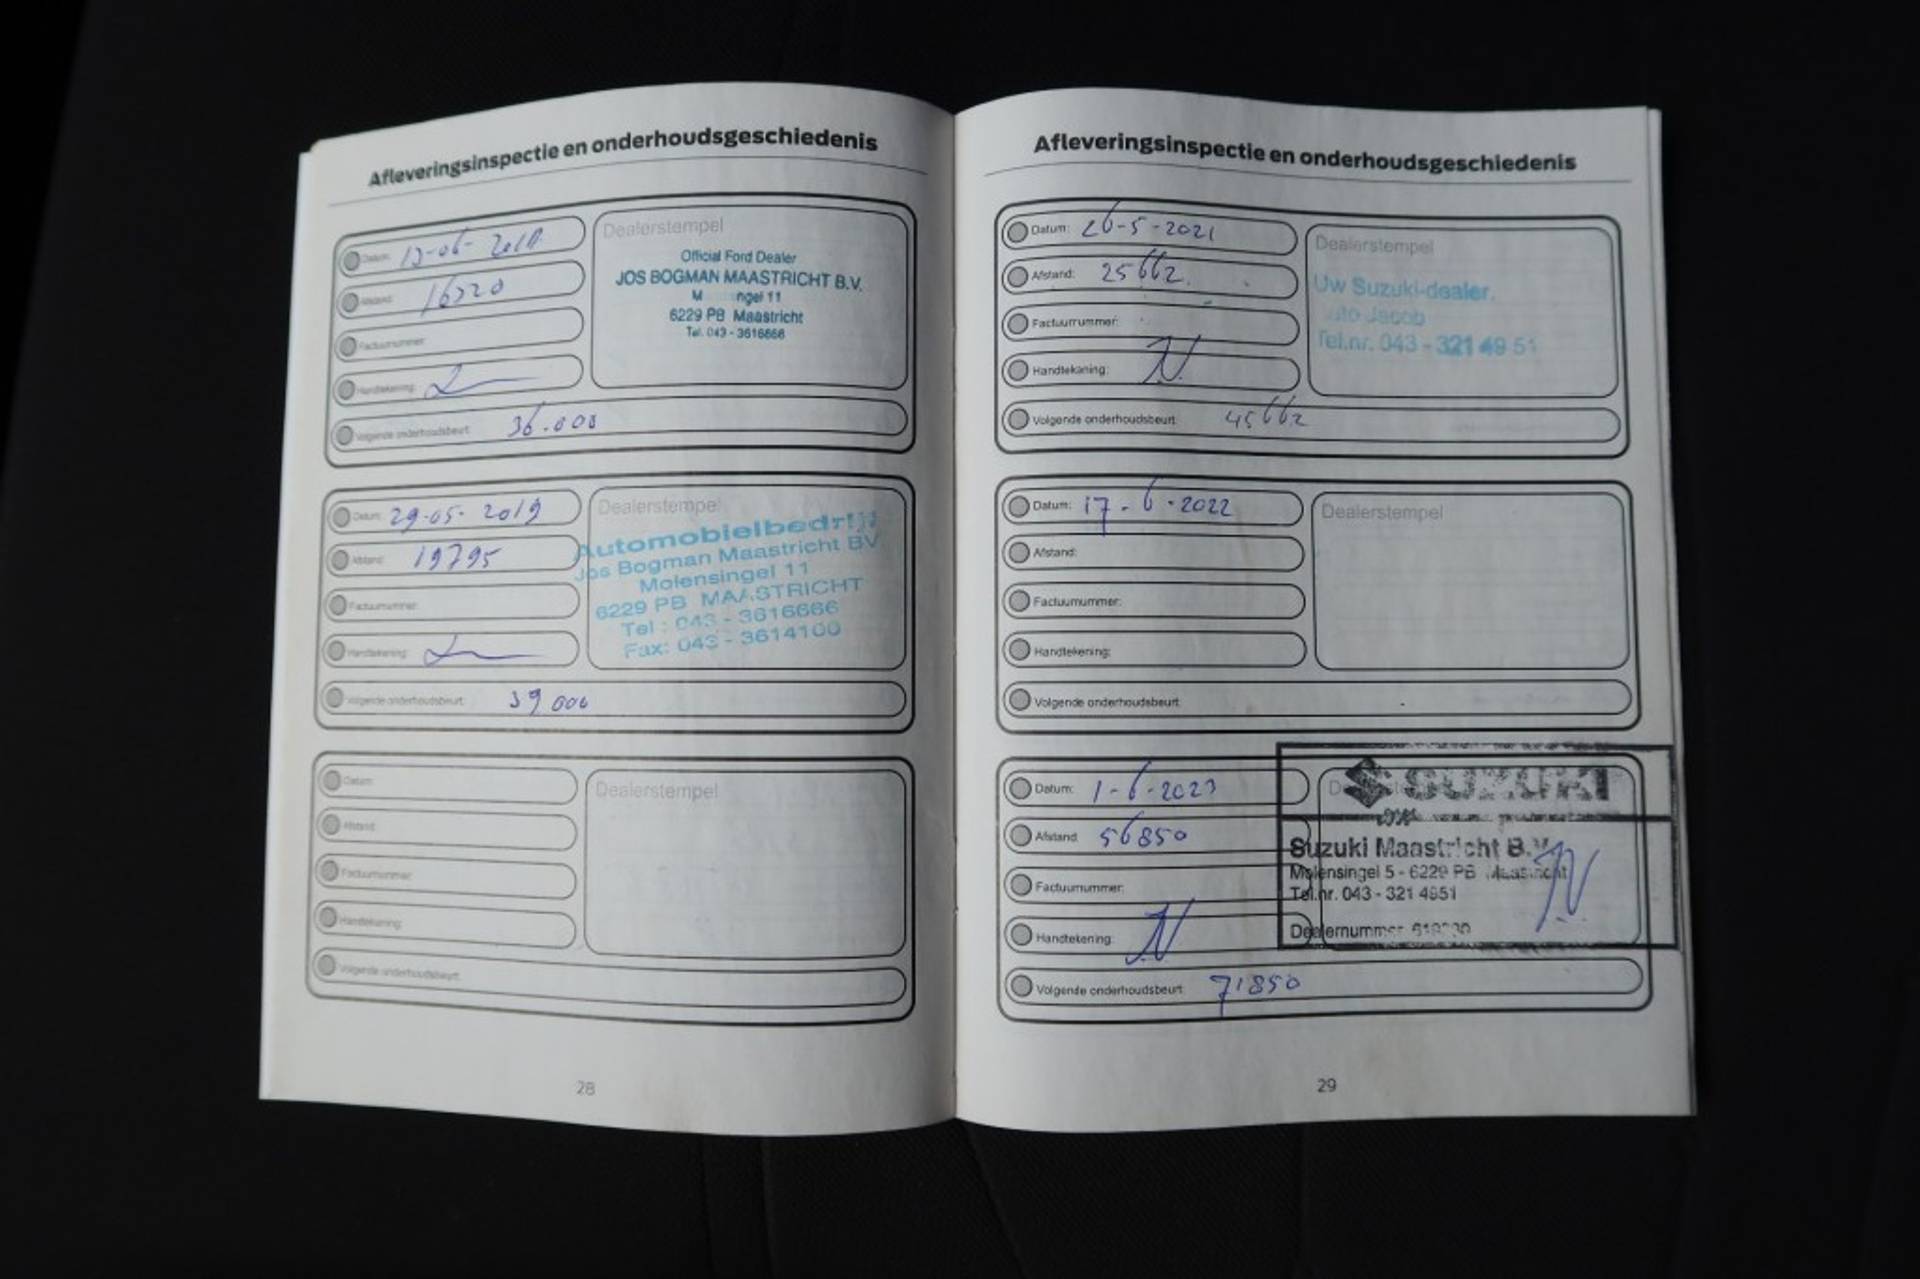 Afleveringsinspectie en onderhoudsgeschiedenis
Datum:
Afstand: 16520
Factuurnummer:
Handtekening:
Volgende onderhoudsbeurt: 36.000
Dealerstempel
Official Ford Dealer
JOS BOGMAN MAASTRICHT B.V.
M ngel 11
6229 PB Maastricht
Tel. 043 - 3616666
Datum: 29-05-2019
Afstand: 19795
Factuurnummer:
Handtekening:
Volgende onderhoudsbeurt: 39 000
Dealerstempel
Automobielbedrijf
Jos Bogman Maastricht BV
Molensingel 11
6229 PB MAASTRICHT
Tel : 043 - 3616666
Fax: 043 - 3614100
Datum:
Afstand:
Factuurnummer:
Handtekening:
Volgende onderhoudsbeurt:
Dealerstempel
28
Afleveringsinspectie en onderhoudsgeschiedenis
Datum: 26-5-2021
Afstand: 25662
Factuurnummer:
Handtekening:
Volgende onderhoudsbeurt: 45662
Dealerstempel
Uw Suzuki-dealer.
uto Jacob
Tel.nr. 043 - 321 49 51
Datum: 17-6-2022
Afstand:
Factuurnummer:
Handtekening:
Volgende onderhoudsbeurt:
Dealerstempel
Datum: 1-6-2023
Afstand: 56850
Factuurnummer:
Handtekening:
Volgende onderhoudsbeurt: 71850
SUZUKI
Suzuki Maastricht B.V.
Molensingel 5 - 6229 PB Maastricht
Tel.nr. 043 - 321 4951
Dealernummer
29